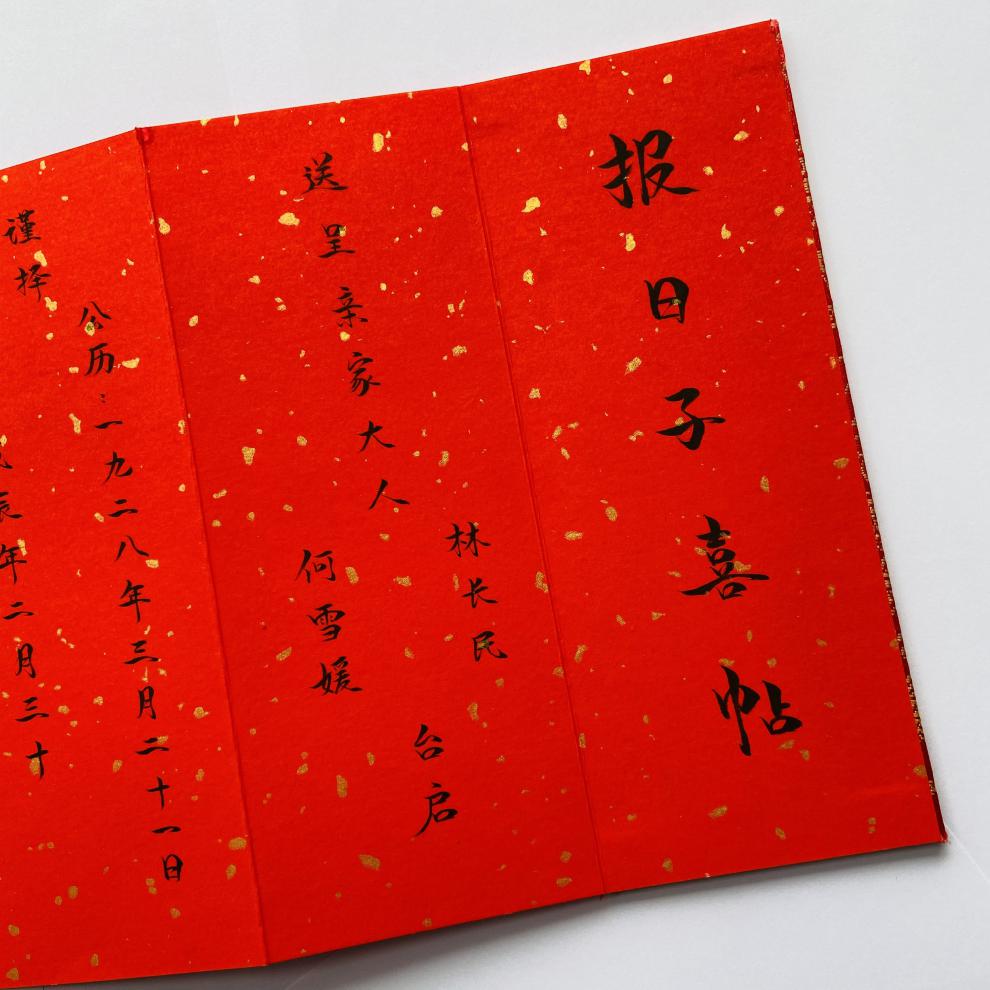 报日子喜帖
送呈亲家大人
林长民
何雪媛
台启
谨择
公历：一九二八年三月二十一日
辰年二月三十